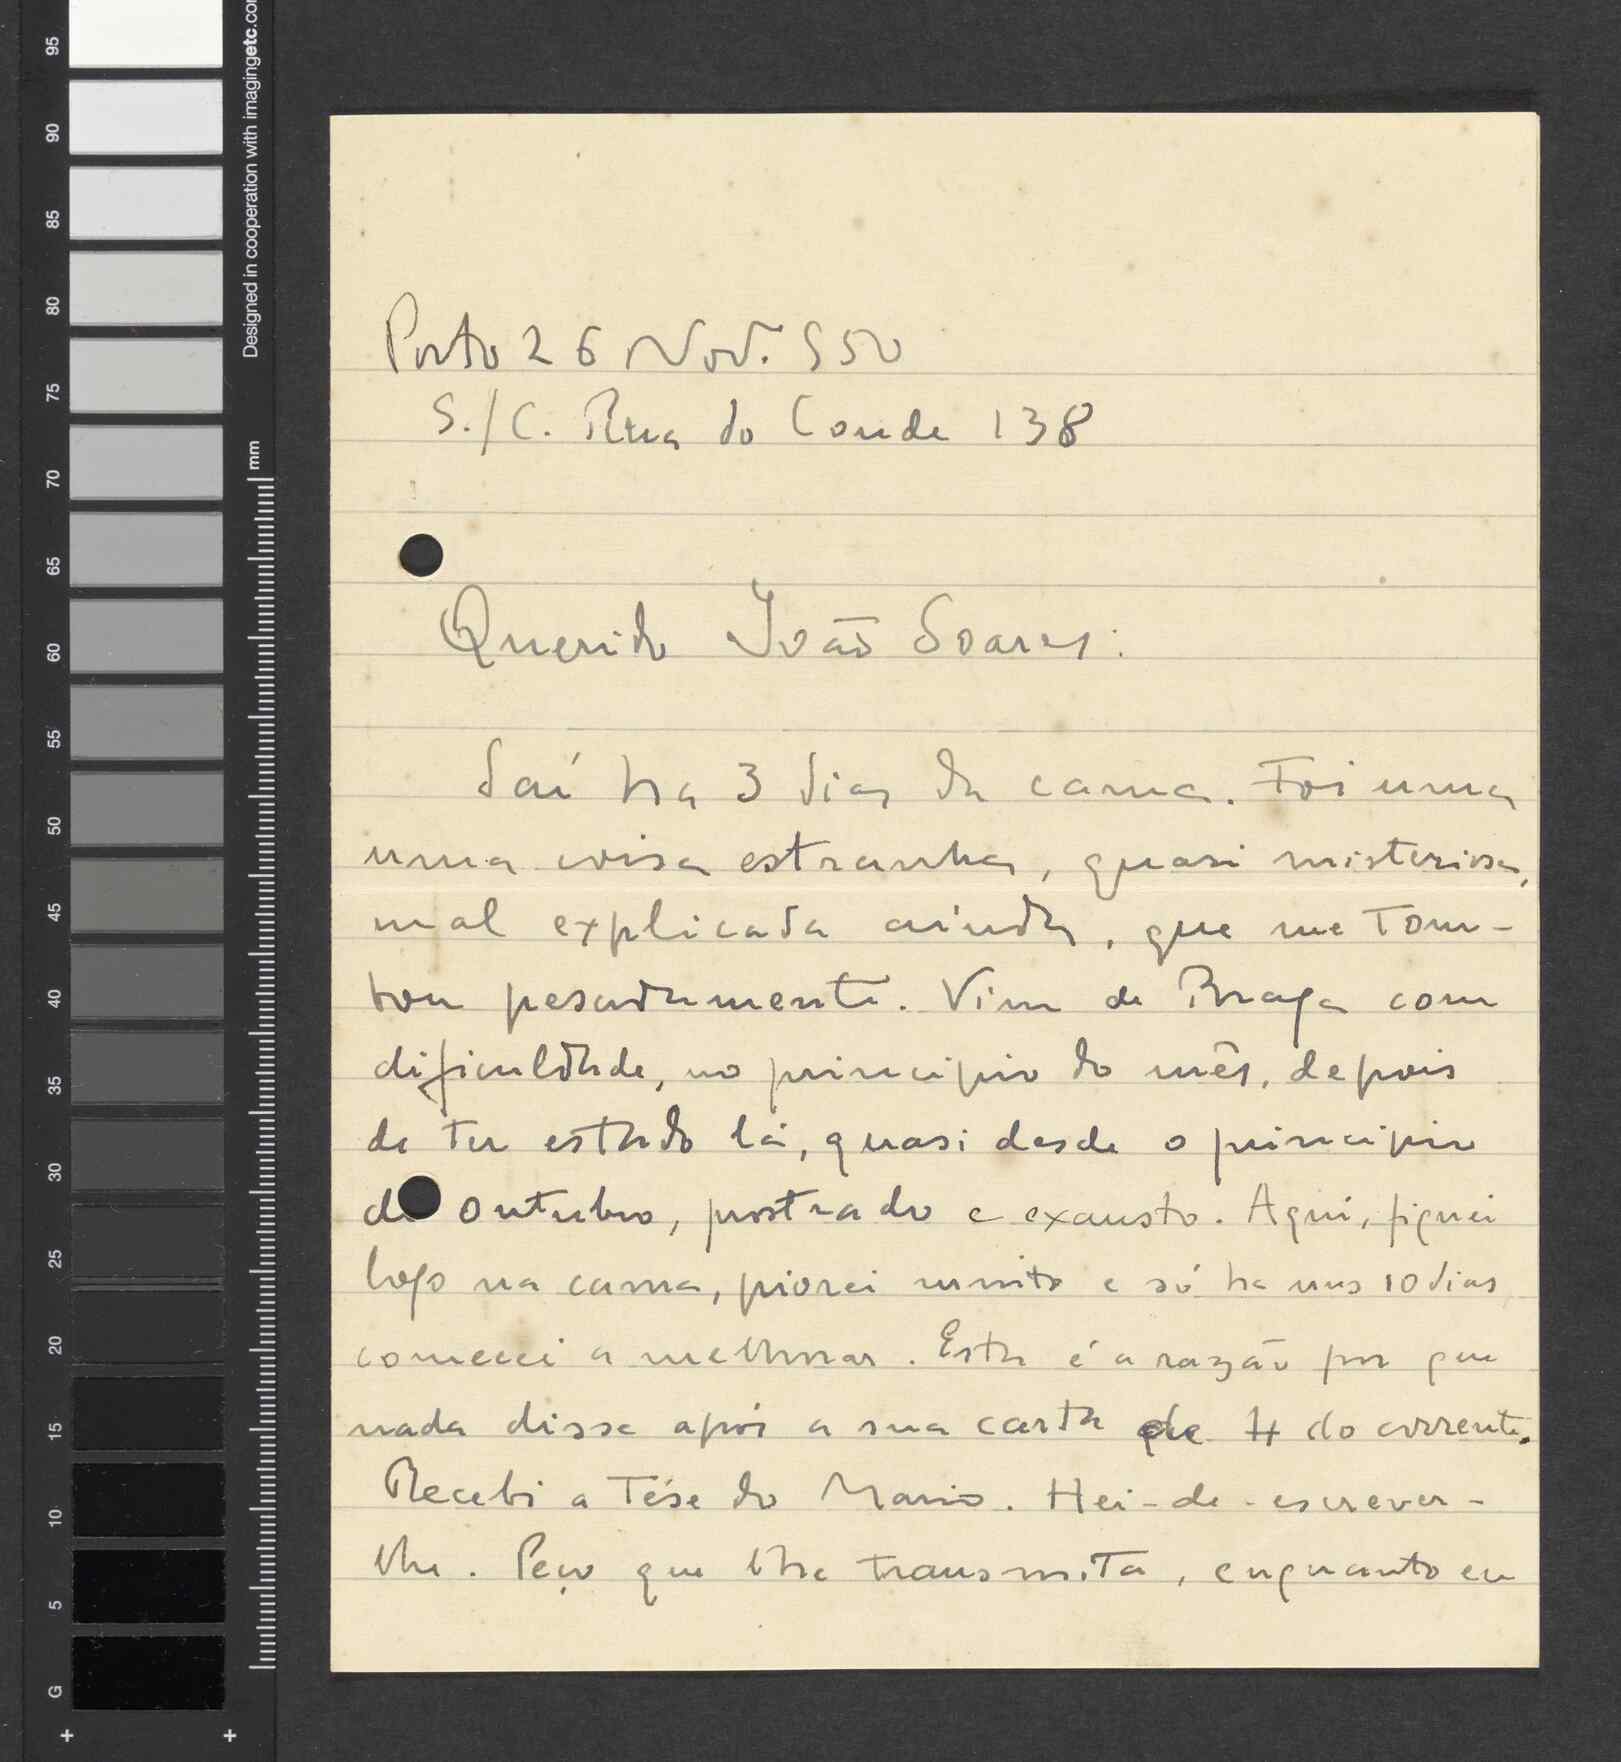 95
90
85
80
75
70
65
60
55
50
45
40
35
30
25
20
15
10
5
G
Designed in cooperation with imagingetc.co
mm
Porto 26 Nov. 950
S./C. Rua do Conde 138
Querido João Soares:
Saí ha 3 dias da cama. Foi uma
uma coisa estranha, quasi misteriosa,
mal explicada ainda, que me tom-
bou pesadamente. Vim de Braga com
dificuldade, no principio do mês, depois
de ter estado lá, quasi desde o principio
de Outubro, prostrado e exausto. Aqui, fiquei
logo na cama, piorei muito e só ha uns 10 dias
comecei a melhorar. Esta é a razão por que
nada disse após a sua carta de 4 do corrente.
Recebi a Tése do Mario. Hei-de-escrever-
lhe. Peço que lhe transmita, enquanto eu